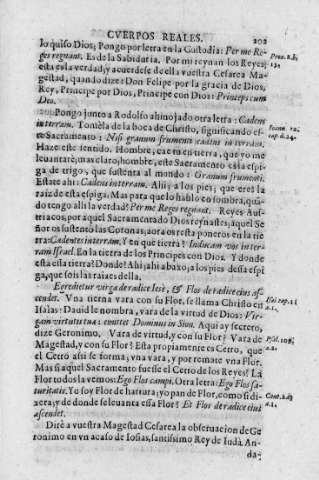 CVERPOS REALES. 202
lo quiso Dios; Pongo por letra en la Custodia: Per me Re-
ges regnant. Es de la Sabiduria. Por mi reynan los Reyes; Prou. 8.
esta es la verdad, y acuerdese de ella vuestra Cesarea Ma-
gestad, quando dize: Don Felipe por la gracia de Dios,
Rey, Principe por Dios, Principe con Dios: Princeps cum
Deo.
Pongo junto a Rodolfo ahinojado otra letra: Cadens
in terram. Tomèla de la boca de Christo, significando es-
te Sacramento: Nisi granum frumenti cadens in terram.
Haze este sentido. Hombre, cae ra en tierra, que yo me
leuantarè; mas claro, hombre, este Sacramento es la espi-
ga de trigo, que sustenta al mundo: Granum frumenti.
Estate ahi: Cadens in terram. Ahi; a los pies; que eres la
raiz de esta espiga. Mas para que lo hablo en sombra, quã-
do tengo alli la verdad? Per me Reges regnant. Reyes Aus-
triacos, por aquel Sacramentado Dios reynastes; aquel Se
ñor os sustentò las Coronas; aora os resta poneros en la tie
rra: Cadentes in terram. Y en que tierra? Inducam vos in ter-
ram Israel. En la tierra de los Principes con Dios. Y donde
està esta tierra? Donde? Ahi; ahi abaxo, a los pies dessa espi
ga, que sois las raizes della.
Egredietur virga de radice Iesè, & Flos de radice eius as-
cendet. Vna tierna vara con su Flor, se llama Christo en Isai. cap. 11
Isaias: Dauid le nombra, vara de la virtud de Dios: Vir-
gam virtutis tuæ emittet Dominus in Sion. Aqui ay secreto,
dize Geronimo, Vara de virtud, y con su Flor? Vara de
Magestad, y con su Flor? Esta propiamente es Cetro, que
el Cetro assi se forma; vna vara, y por remate vna Flor.
Mas si aquel Sacramento fuesse el Cetro de los Reyes? La
Flor todos la vemos: Ego Flos campi. Otra letra: Ego Flos sa-
turitatis. Yo soy Flor de hartura; yo pan de Flor, como si di-
xera; y de donde se leuanta essa Flor? Et Flos de radice eius
ascendet.
Dirè a vuestra Magestad Cesarea la obseruacion de Ge
ronimo en vn acaso de Iosias, santissimo Rey de Iudà. An-
da-